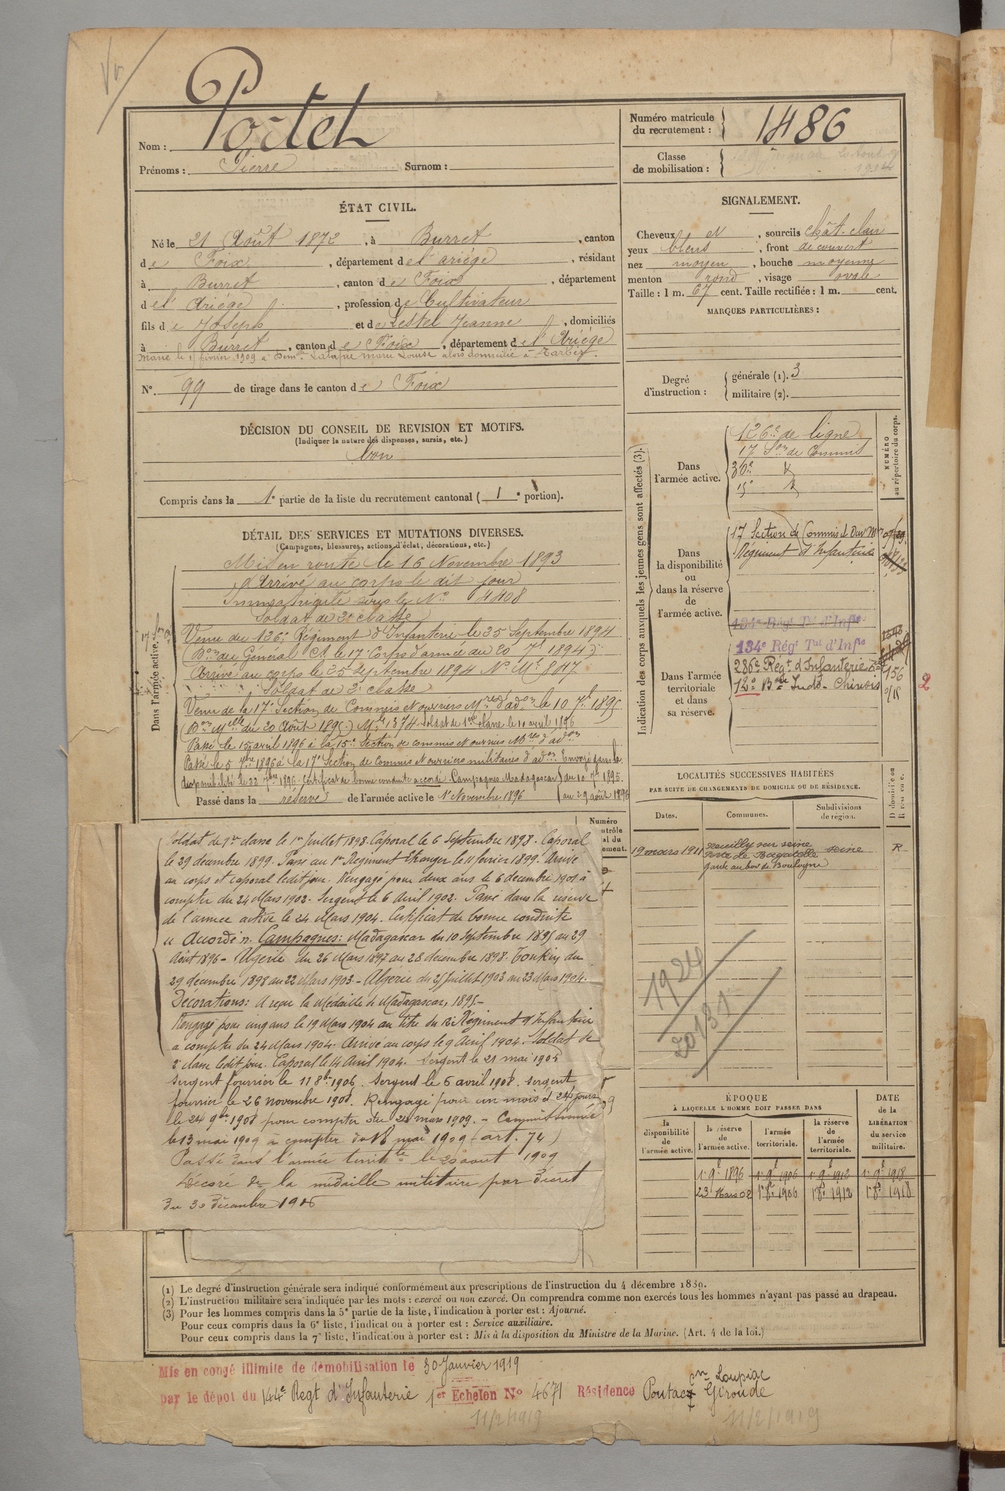 Nom : Portet
Prénoms : Pierre Surnom :
Numéro matricule du recrutement : 1486
Classe de mobilisation :
ÉTAT CIVIL.
Né le 21 Août 1872, à Burret, canton
de Foix, département de l'ariège, résidant
à Burret, canton de Foix, département
de l'Ariège, profession de Cultivateur
fils de Joseph et de Lestel Jeanne, domiciliés
à Burret, canton de Foix, département de l'Ariège
Marié le février 1909 à Demlle Marie Louise alors domiciliée à Tarbes.
N° 99 de tirage dans le canton de Foix
SIGNALEMENT.
Cheveux et, sourcils chât. clair
yeux bleus, front découvert
nez moyen, bouche moyenne
menton rond, visage ovale
Taille : 1 m. 67 cent. Taille rectifiée : 1 m. cent.
MARQUES PARTICULIÈRES :
Degré d'instruction : générale (1). 3
militaire (2).
DÉCISION DU CONSEIL DE REVISION ET MOTIFS.
(Indiquer la nature des dispenses, sursis, etc.)
bon
Compris dans la 1e partie de la liste du recrutement cantonal ( 1e portion).
DÉTAIL DES SERVICES ET MUTATIONS DIVERSES.
(Campagnes, blessures, actions d'éclat, décorations, etc.)
Dans l'armée active.
Mis en route le 16 Novembre 1893
Arrivé au corps le dit jour
Immatriculé sous le N° 4408
Soldat de 2e classe
Venu du 126e Régiment d'Infanterie le 25 Septembre 1894
(Don du Général Ct le 17e Corps d'armée du 20 7bre 1894)
Arrivé au corps le 25 septembre 1894 N° Mle 8117
Soldat de 2e classe
Venu de la 17e Section de Commis et ouvriers Mres d'adon le 10 7bre 1895
(Don Mlle du 20 Août 1895) Soldat de 1ère classe le 10 avril 1896
Passé le avril 1896 à la 15e Section de commis et ouvriers Mres d'adon
Passé le 5 7bre 1896 à la 17e Section de Commis et ouvriers militaires d'adon. Envoyé dans la
disponibilité le 22 7bre 1896. Certificat de bonne conduite accordé. Campagnes Madagascar du 10 7bre 1895
Passé dans la réserve de l'armée active le 1er Novembre 1896 au 29 août 1896
Soldat de 1re classe le 1er Juillet 1898. Caporal le 6 Septembre 1898. Caporal
le 29 décembre 1899. Passé au 1er Régiment étranger le 11 février 1899. Arrivé
au corps et caporal ledit jour. Rengagé pour deux ans le 6 decembre 1901 à
compter du 24 Mars 1902. Sergent le 6 Avril 1902. Passé dans la réserve
de l'armée active le 24 Mars 1904. Certificat de bonne conduite
« Accordé ». Campagnes: Madagascar du 10 Septembre 1895 au 29
Août 1896 - Algérie du 26 Mars 1897 au 28 décembre 1898. Tonkin du
29 décembre 1898 au 22 Mars 1903 - Algérie du 2 Juillet 1903 au 23 Mars 1904.
Décorations: A reçu la médaille de Madagascar, 1895.-
Rengagé pour cinq ans le 19 Mars 1904 au titre du Régiment d'Infanterie
à compter du 24 Mars 1904. Arrivé au corps le 9 Avril 1904. Soldat de
2e classe ledit jour. Caporal le 14 Avril 1904. Sergent le 21 mai 1905
Sergent fourrier le 11 8bre 1906. Sergent le 6 avril 1908. Sergent
fourrier le 26 novembre 1908. Rengagé pour un mois et 24 jours
le 24 9bre 1908 pour compter du 24 mars 1909. - Commissionné
le 13 mai 1909 à compter du 16 mai 1909 - art. 74)
Passé dans l'armée territle le 20 aout 1909
Décoré de la médaille militaire par Décret
du 30 décembre 1906
Indication des corps auxquels les jeunes gens sont affectés (3).
NUMÉRO au répertoire du corps.
Dans l'armée active.
126e de ligne
17 Son de Commis
Dans la disponibilité ou dans la réserve de l'armée active.
17 Section de Commis et Ouv. M
Régiment d'Infanterie
Dans l'armée territoriale et dans sa réserve.
134e Régt Tal d'Infie
134e Régt Tal d'Infie
286e Régt d'Infanterie
Bon Indo-Chinois
156
2
LOCALITÉS SUCCESSIVES HABITÉES
PAR SUITE DE CHANGEMENTS DE DOMICILE OU DE RÉSIDENCE.
Dates. Communes. Subdivisions de région. D domicile ou R résidence.
19 mars 1911 neuilly sur seine seine R
Porte de Bagatelle
garde au bois de Boulogne
1924
20131
ÉPOQUE
À LAQUELLE L'HOMME DOIT PASSER DANS
DATE de la LIBÉRATION du service militaire.
la disponibilité de l'armée active. la réserve de l'armée active. l'armée territoriale. la réserve de l'armée territoriale.
1er 9bre 1896 1er 9bre 1906 1er 9bre 1912 1er 9bre 1918
23 Mars 02 1er 8bre 1906 1er 8bre 1912 1er 8bre 1918
(1) Le degré d'instruction générale sera indiqué conformément aux prescriptions de l'instruction du 4 décembre 1889.
(2) L'instruction militaire sera indiquée par les mots : exercé ou non exercé. On comprendra comme non exercés tous les hommes n'ayant pas passé au drapeau.
(3) Pour les hommes compris dans la 5e partie de la liste, l'indication à porter est : Ajourné.
Pour ceux compris dans la 6e liste, l'indication à porter est : Service auxiliaire.
Pour ceux compris dans la 7e liste, l'indication à porter est : Mis à la disposition du Ministre de la Marine. (Art. 4 de la loi.)
Mis en congé illimité de démobilisation le 30 Janvier 1919
par le dépôt du 144e Regt d'Infanterie 1er Echelon N° 4671 Résidence Loupiac Gironde
11/2/1919
11/2/1919